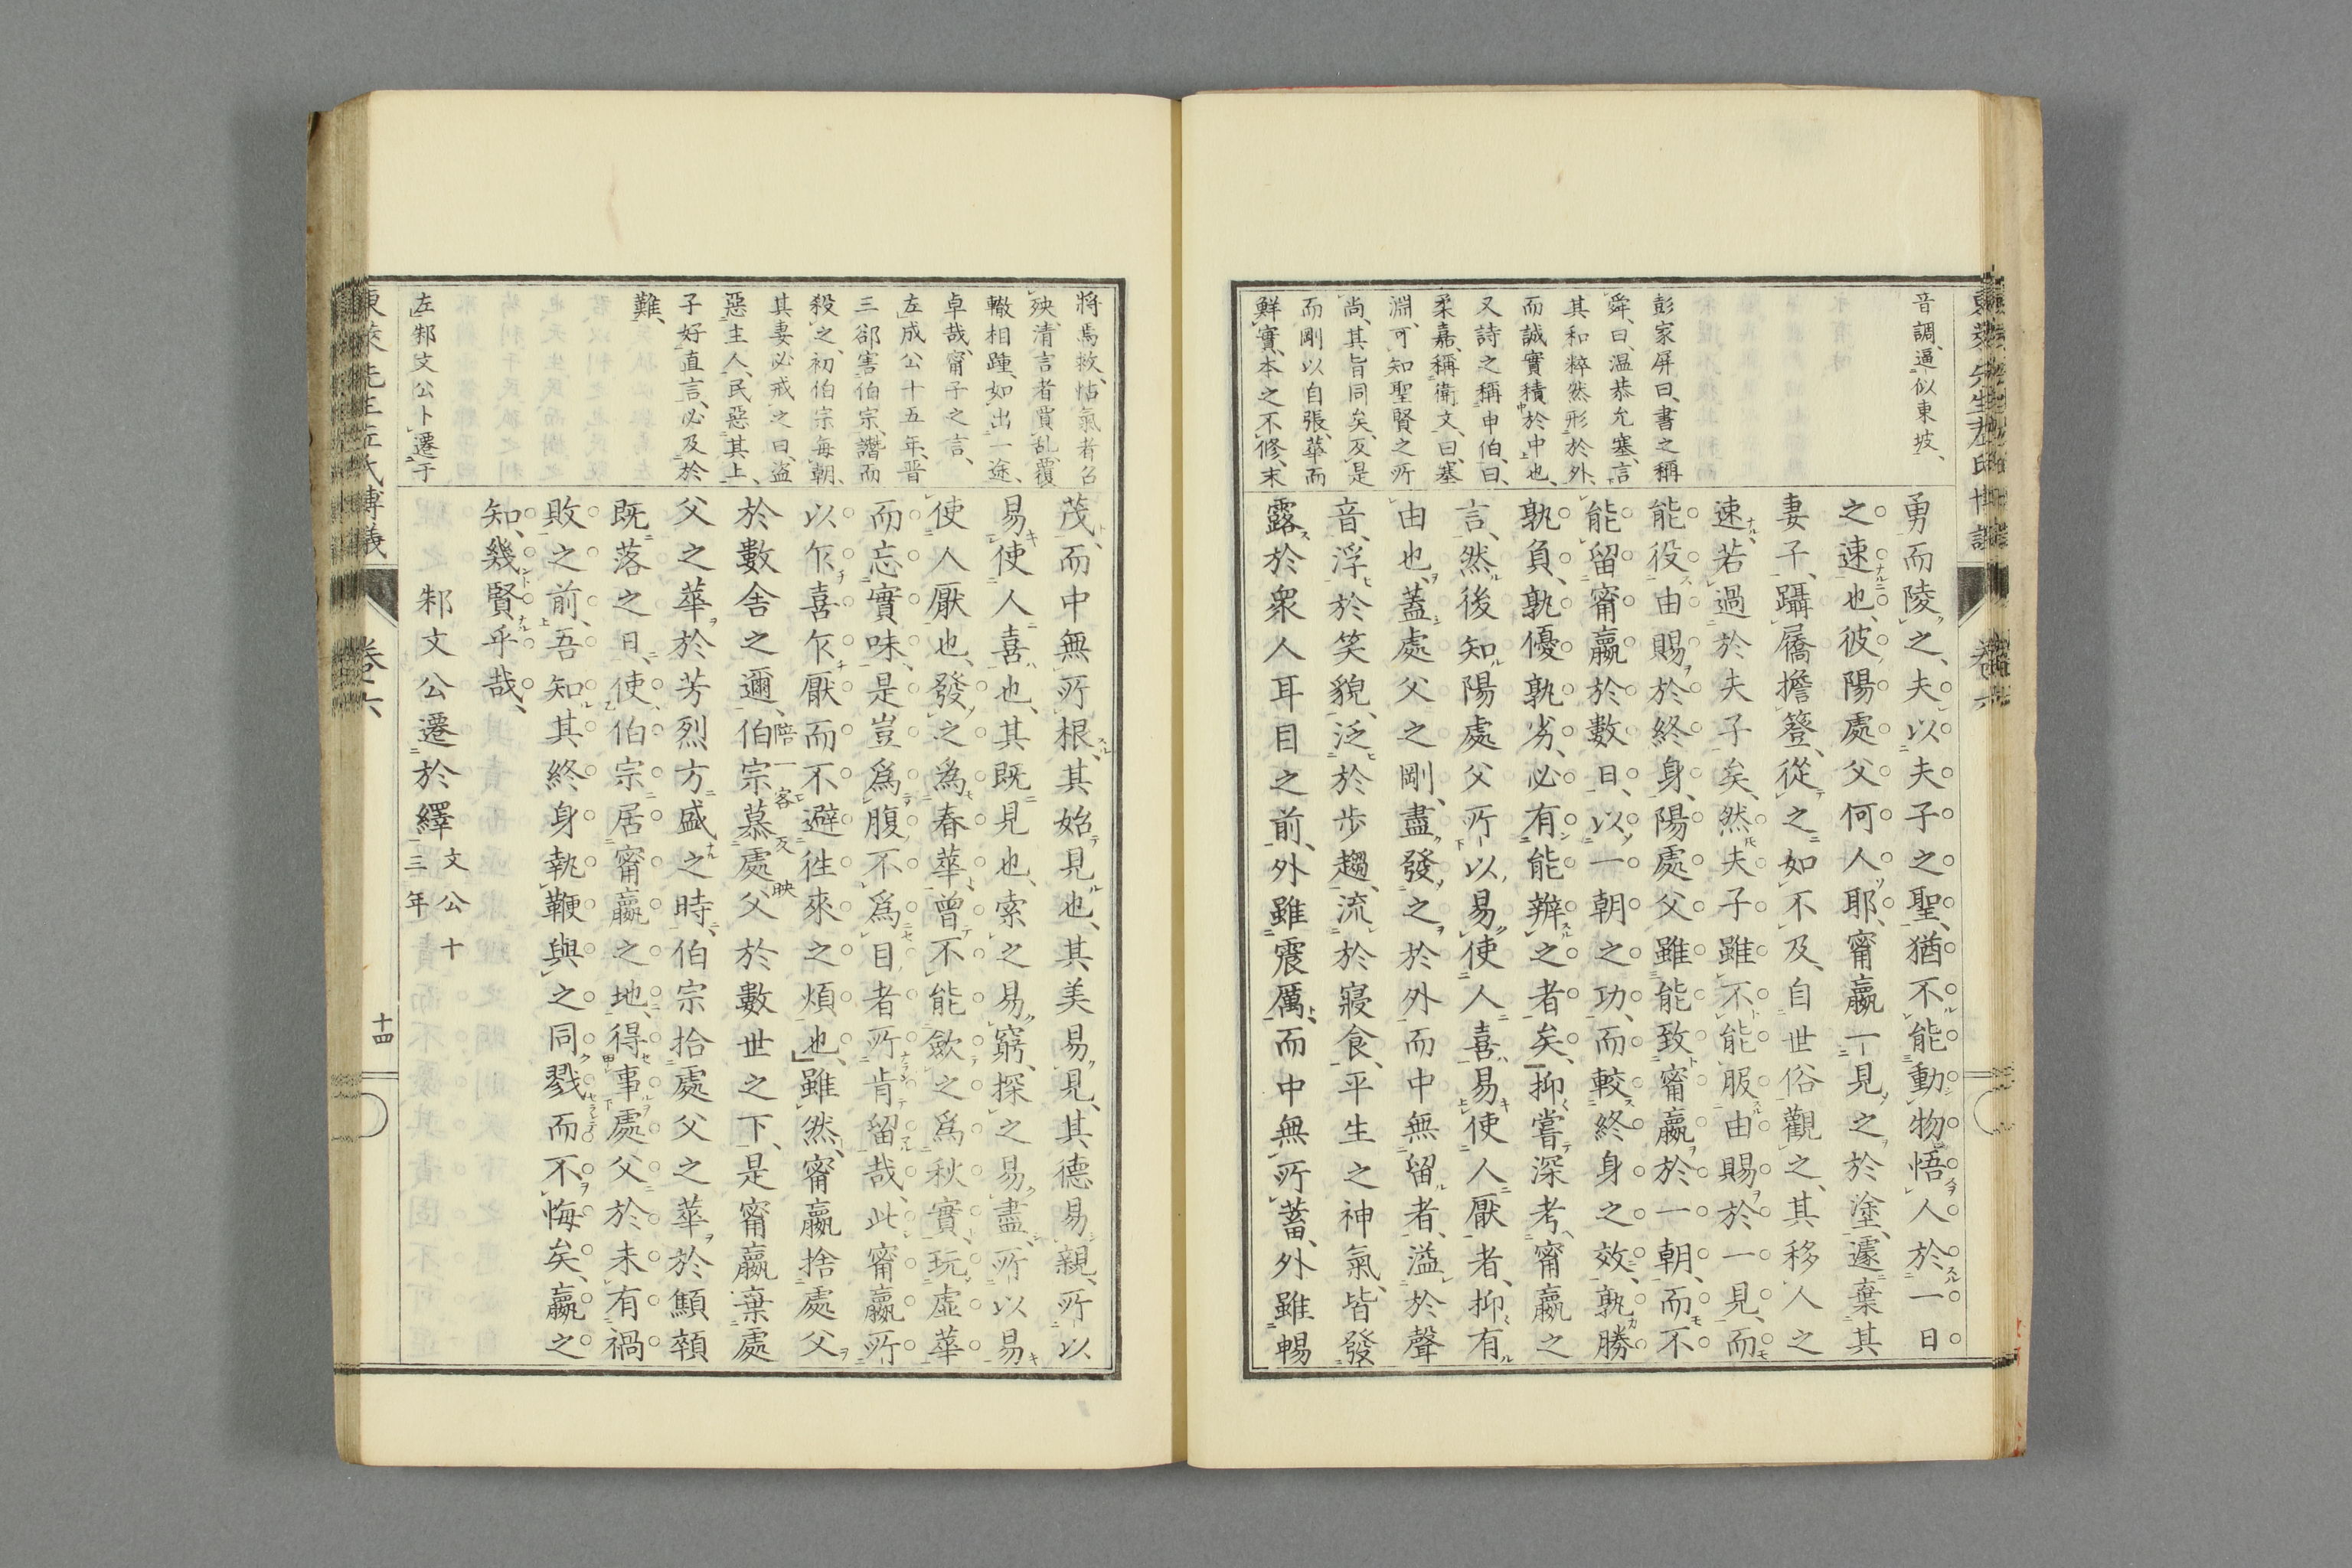 音調、逼似東坡、
彭家屏曰、書之稱
舜曰、温恭允塞、言
其和粹然形於外、
而誠實積於中也、
又詩之稱申伯曰、
柔嘉、稱衛文、曰、塞
淵、可知聖賢之所
尚、其旨同矣、反是
而剛以自張、華而
鮮實、本之不修、末
勇而陵之、夫以夫子之聖、猶不能動物悟人於一日
之速也、彼陽處父何人耶、甯嬴一見之於塗、遽棄其
妻子、躡屩擔簦、從之如不及、自世俗觀之、其移人之
速、若過於夫子矣、然夫子雖不能服由賜於一見、而
能役由賜於終身、陽處父雖能致甯嬴於一朝、而不
能留甯嬴於數日、以一朝之功、而較終身之效、孰勝
孰負、孰優孰劣、必有能辨之者矣、抑嘗深考甯嬴之
言、然後知陽處父所以易使人喜、易使人厭者、抑有
由也、蓋處父之剛、盡發之於外而中無留者、溢於聲
音、浮於笑貌、泛於步趨、流於寢食、平生之神氣、皆發
露於衆人耳目之前、外雖震厲、而中無所蓄、外雖暢
將焉救、怙氣者召
殃、清言者買乱、覆
轍相踵、如出一途、
卓哉、甯子之言、
左成公十五年、晉
三郤害伯宗、譖而
殺之、初伯宗每朝、
其妻必戒之曰、盜
惡主人、民惡其上、
子好直言、必及於
難、
左邾文公卜遷于
茂、而中無所根、其始見也、其美易見、其德易親、所以
易使人喜也、其既見也、索之易窮、探之易盡、所以易
使人厭也、發之為春華、曾不能斂之爲秋實、玩虛華
而忘實味、是豈爲腹不爲目者所肯留哉、此甯嬴所
以乍喜乍厭而不避徃來之煩也、雖然、甯嬴捨處父
於數舍之邇、伯宗慕處父於數世之下、是甯嬴棄處
陪一客反映
父之華於芳烈方盛之時、伯宗拾處父之華於顦顇
既落之日、使伯宗居甯嬴之地、得事處父於未有禍
敗之前、吾知其終身執鞭與之同戮而不悔矣、嬴之
知、幾賢乎哉、
邾文公遷於繹 文公十三年
東萊先生左氏博議
卷六
十四